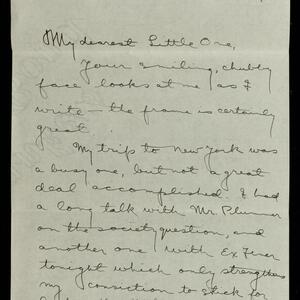 My dearest Little One,
Your smiling, chubby
face looks at me as I
write — the frame is certainly
great.
My trip to New York was
a busy one, but not a great
deal accomplished. I had
a long talk with Mr. Plummer
on the society question, and
another one with Ex
tonight which only strengthens
my conviction to stick for